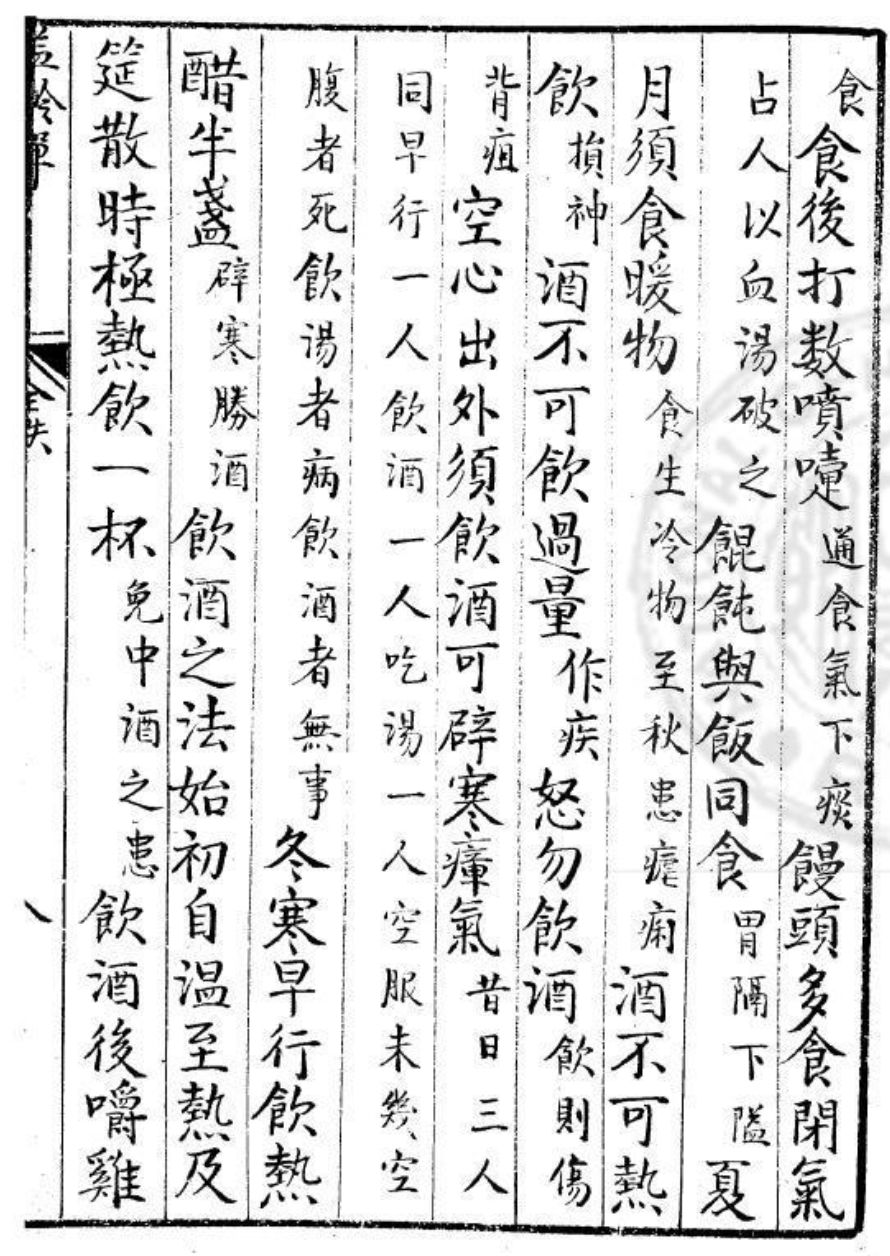 食食後打数噴嚏通食氣下痰饅頭多食閉氣
占人以血湯破之餛飩與飯同食胃隔下隘夏
月須食暖物食生冷物至秋患瘧痢酒不可熱
飲損神酒不可飲過量作疾怒勿飲酒飲則傷
背疽空心出外須飲酒可辟寒瘴氣昔日三人
同早行一人飲酒一人吃湯一人空服未幾空
腹者死飲湯者病飲酒者無事冬寒早行飲熱
醋半盞辟寒勝酒飲酒之法始初自温至熱及
筵散時極熱飲一杯免中酒之患飲酒後嚼雞
益齡單